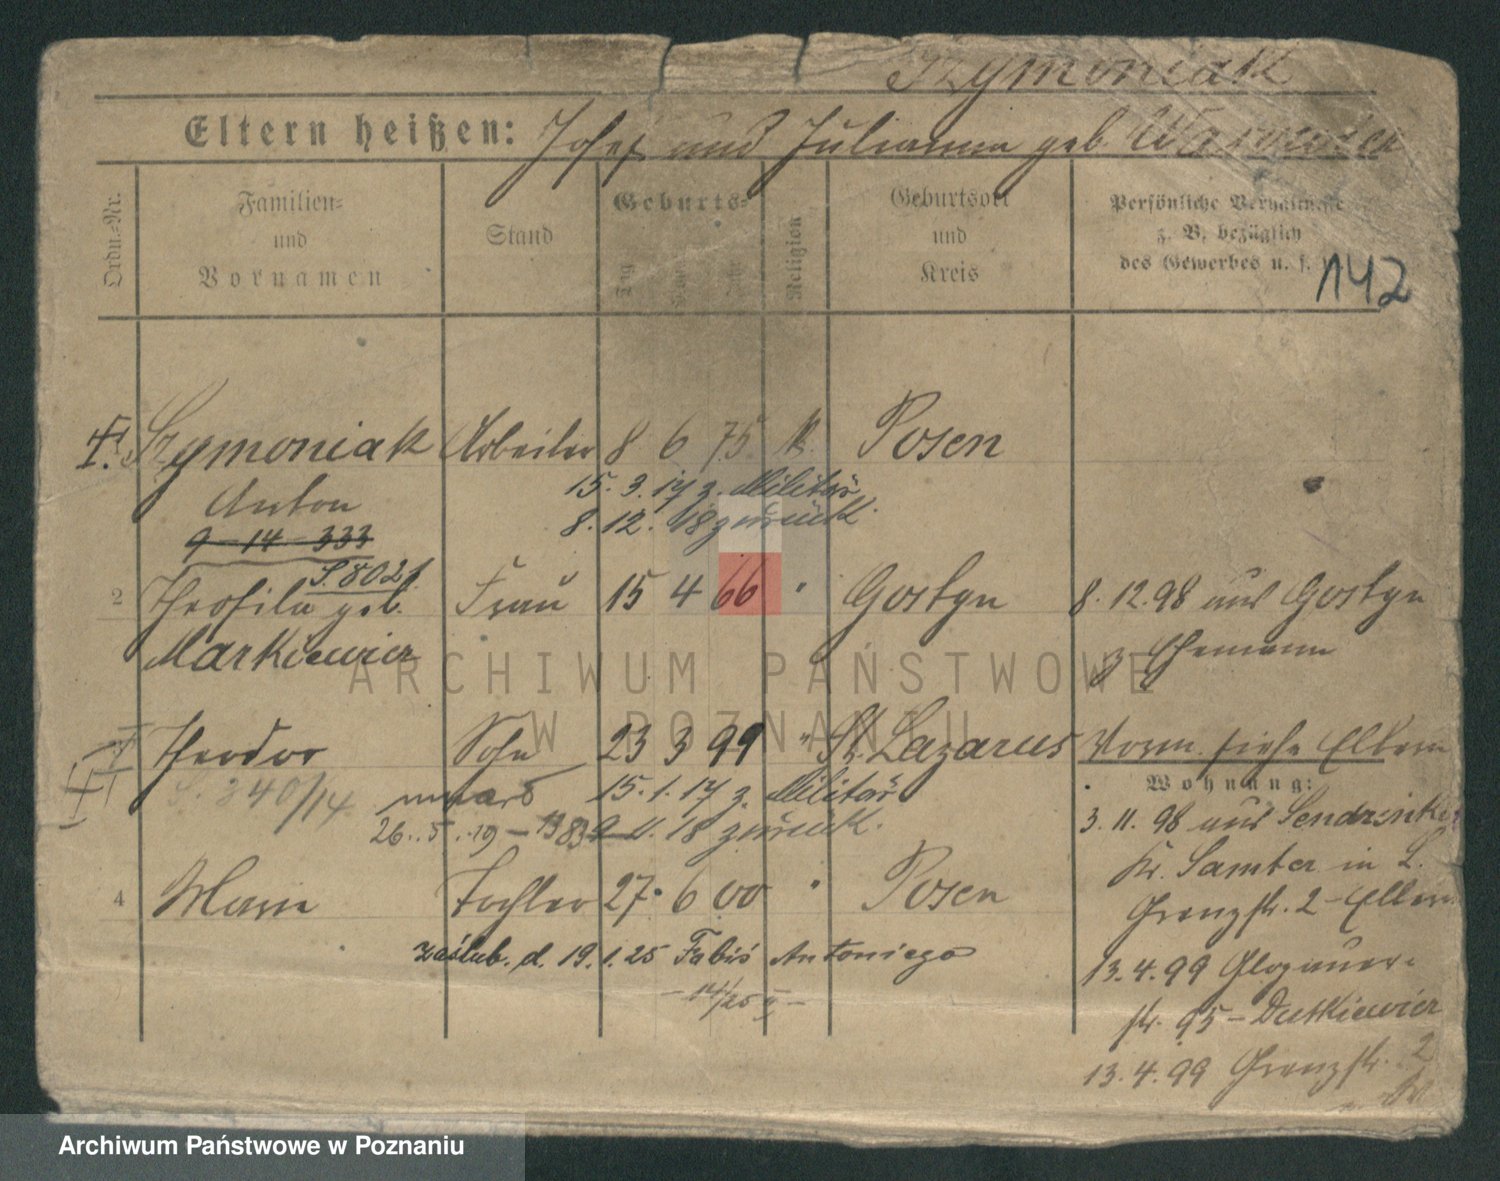 Szymoniak
Eltern heißen: Josef und Julianna geb.
Ordn.-Nr.
Familien- und Vornamen
Stand
Geburts-
Tag
Jahr
Religion
Geburtsort und Kreis
Persönliche Verhältnisse z. B. bezüglich des Gewerbes u. s. w.
142
1. Szymoniak Arbeiter 8 6 75. k. Posen
Anton 15. 3. 17 z. Militär
9 - 14 - 333 8. 12. 18 zurück.
S. 8021.
2 Theofila geb. Frau 15 4 66 " Gostyn 8. 12. 98 aus Gostyn
Markiewicz z. Ehemann
Theodor Sohn 23 3 99 " St. Lazarus Vorm. siehe Eltern
Wohnung:
S. 340/14 15. 1. 17 z. Militär
3. 11. 98 aus
26. 5. 19 - 11. 18 zurück.
Kr. Samter in L.
4 Marie Tochter 27. 6 00 " Posen
Grenzstr. 2 - Eltern
zaślub. d. 19. 1. 25 Fabiś Antoniego
13. 4. 99 Glogauer-
- 14/25 II -
str. 95 - Dutkiewicz
13. 4. 99 Grenzstr. 2
ARCHIWUM PAŃSTWOWE
W POZNANIU
Archiwum Państwowe w Poznaniu